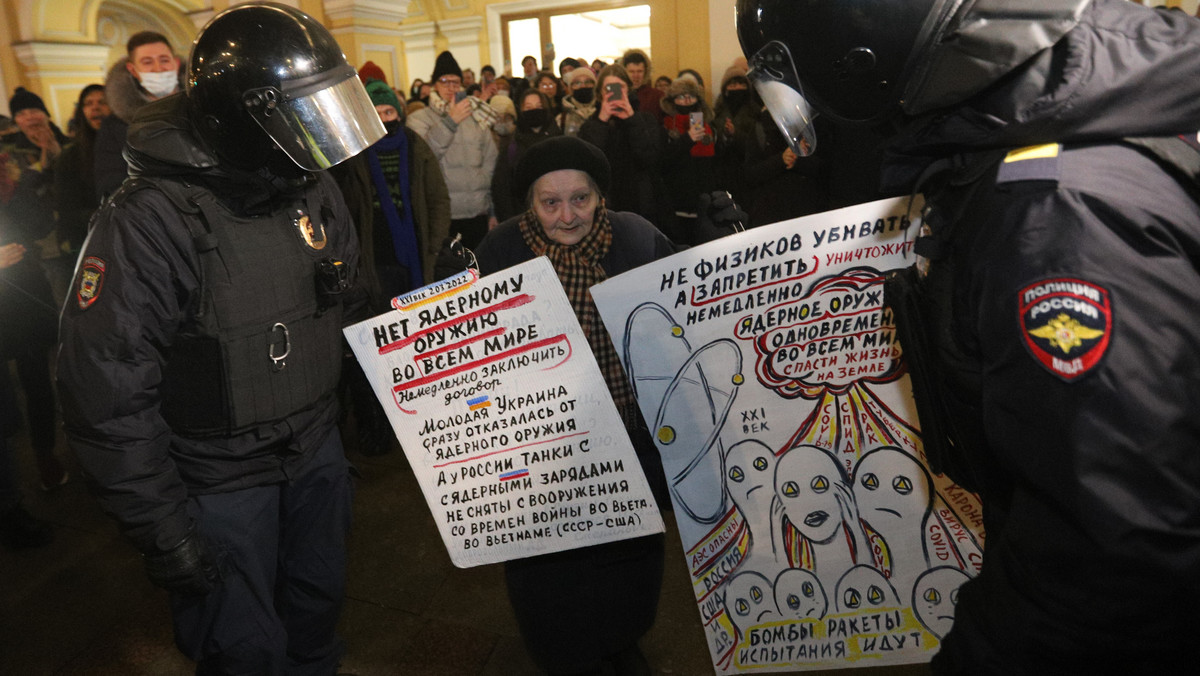 XXI ВЕК 2.03.2022
НЕТ ЯДЕРНОМУ
ОРУЖИЮ
ВО ВСЕМ МИРЕ
НЕМЕДЛЕННО ЗАКЛЮЧИТЬ
ДОГОВОР
МОЛОДАЯ УКРАИНА
СРАЗУ ОТКАЗАЛАСЬ ОТ
ЯДЕРНОГО ОРУЖИЯ
А У РОССИИ ТАНКИ С
С ЯДЕРНЫМИ ЗАРЯДАМИ
НЕ СНЯТЫ С ВООРУЖЕНИЯ
СО ВРЕМЕН ВОЙНЫ ВО ВЬЕТА.
ВО ВЬЕТНАМЕ (СССР-США)
НЕ ФИЗИКОВ УБИВАТЬ
А ЗАПРЕТИТЬ УНИЧТОЖИТЬ
НЕМЕДЛЕННО
ЯДЕРНОЕ ОРУЖ
ОДНОВРЕМЕН
ВО ВСЕМ МИРЕ
СПАСТИ ЖИЗНЬ
НА ЗЕМЛЕ
XXI
ВЕК
СПИД
РАК
COVID
АЭС ОПАСНЫ
РОССИЯ
США
И ДР.
ВИРУС
COVID
БОМБЫ РАКЕТЫ
ИСПЫТАНИЯ ИДУТ
ПОЛИЦИЯ
РОССИЯ
МВД